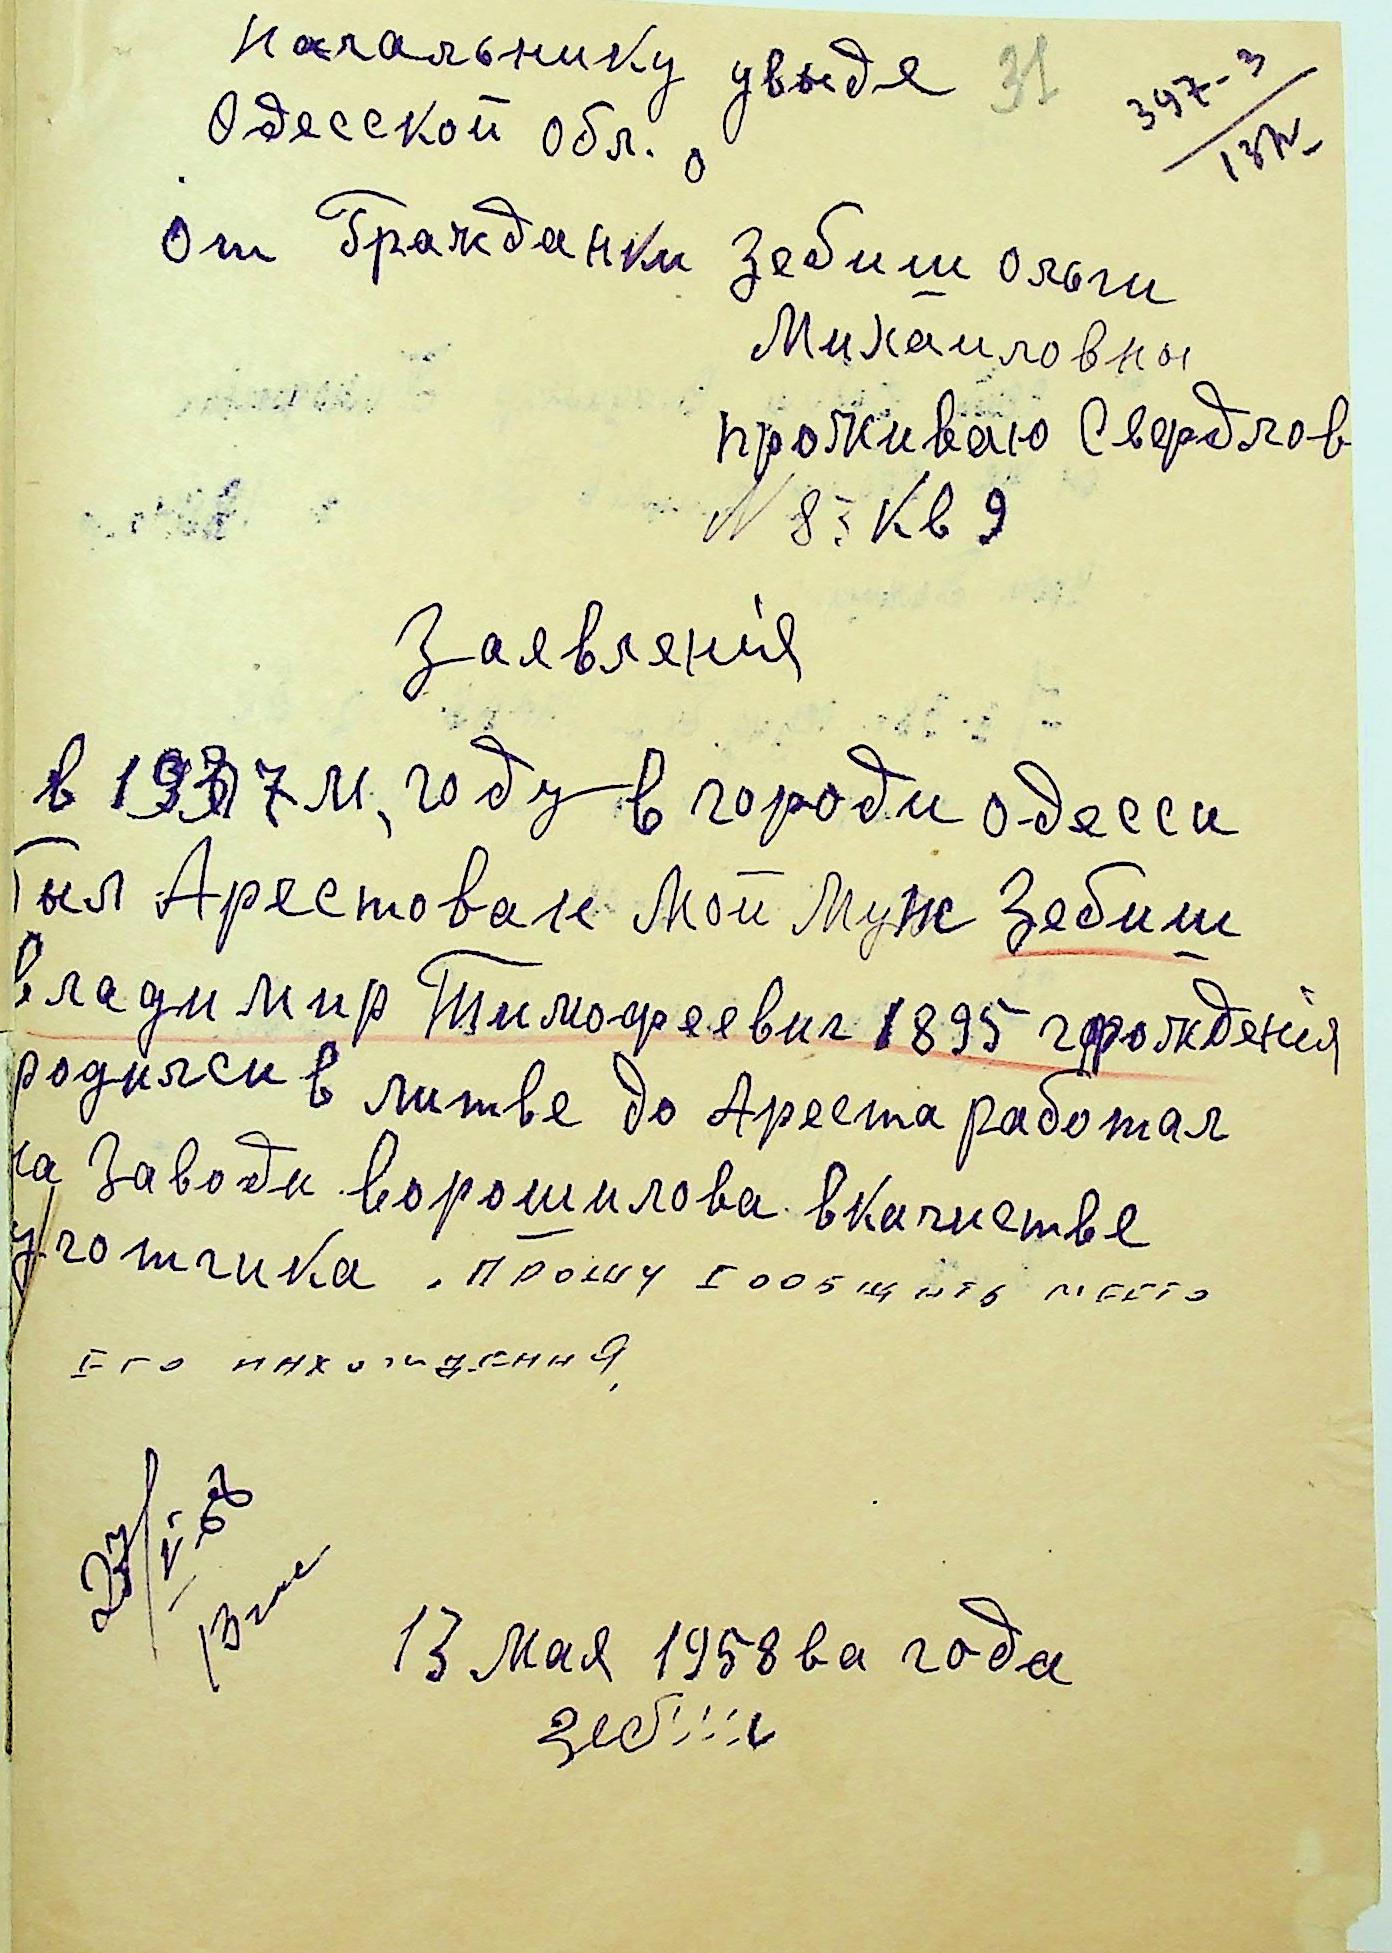 Начальнику увыде 31
Одесской обл.
397-3
от Гражданки Зебиш ольги
Михайловны
проживаю Свердлов
N 83 Кв 9
Заявленія
в 1937 м, году в городи одесси
был Арестован Мой Муж Зебиш
владимир Тимофеевич 1895 г рожденія
родился в литве до Ареста работал
на Заводи ворошилова вкачистве
учотчика. Прошу сообщить место
его нахождения,
23/V-58
13 мая 1958 ва года
Зебиш